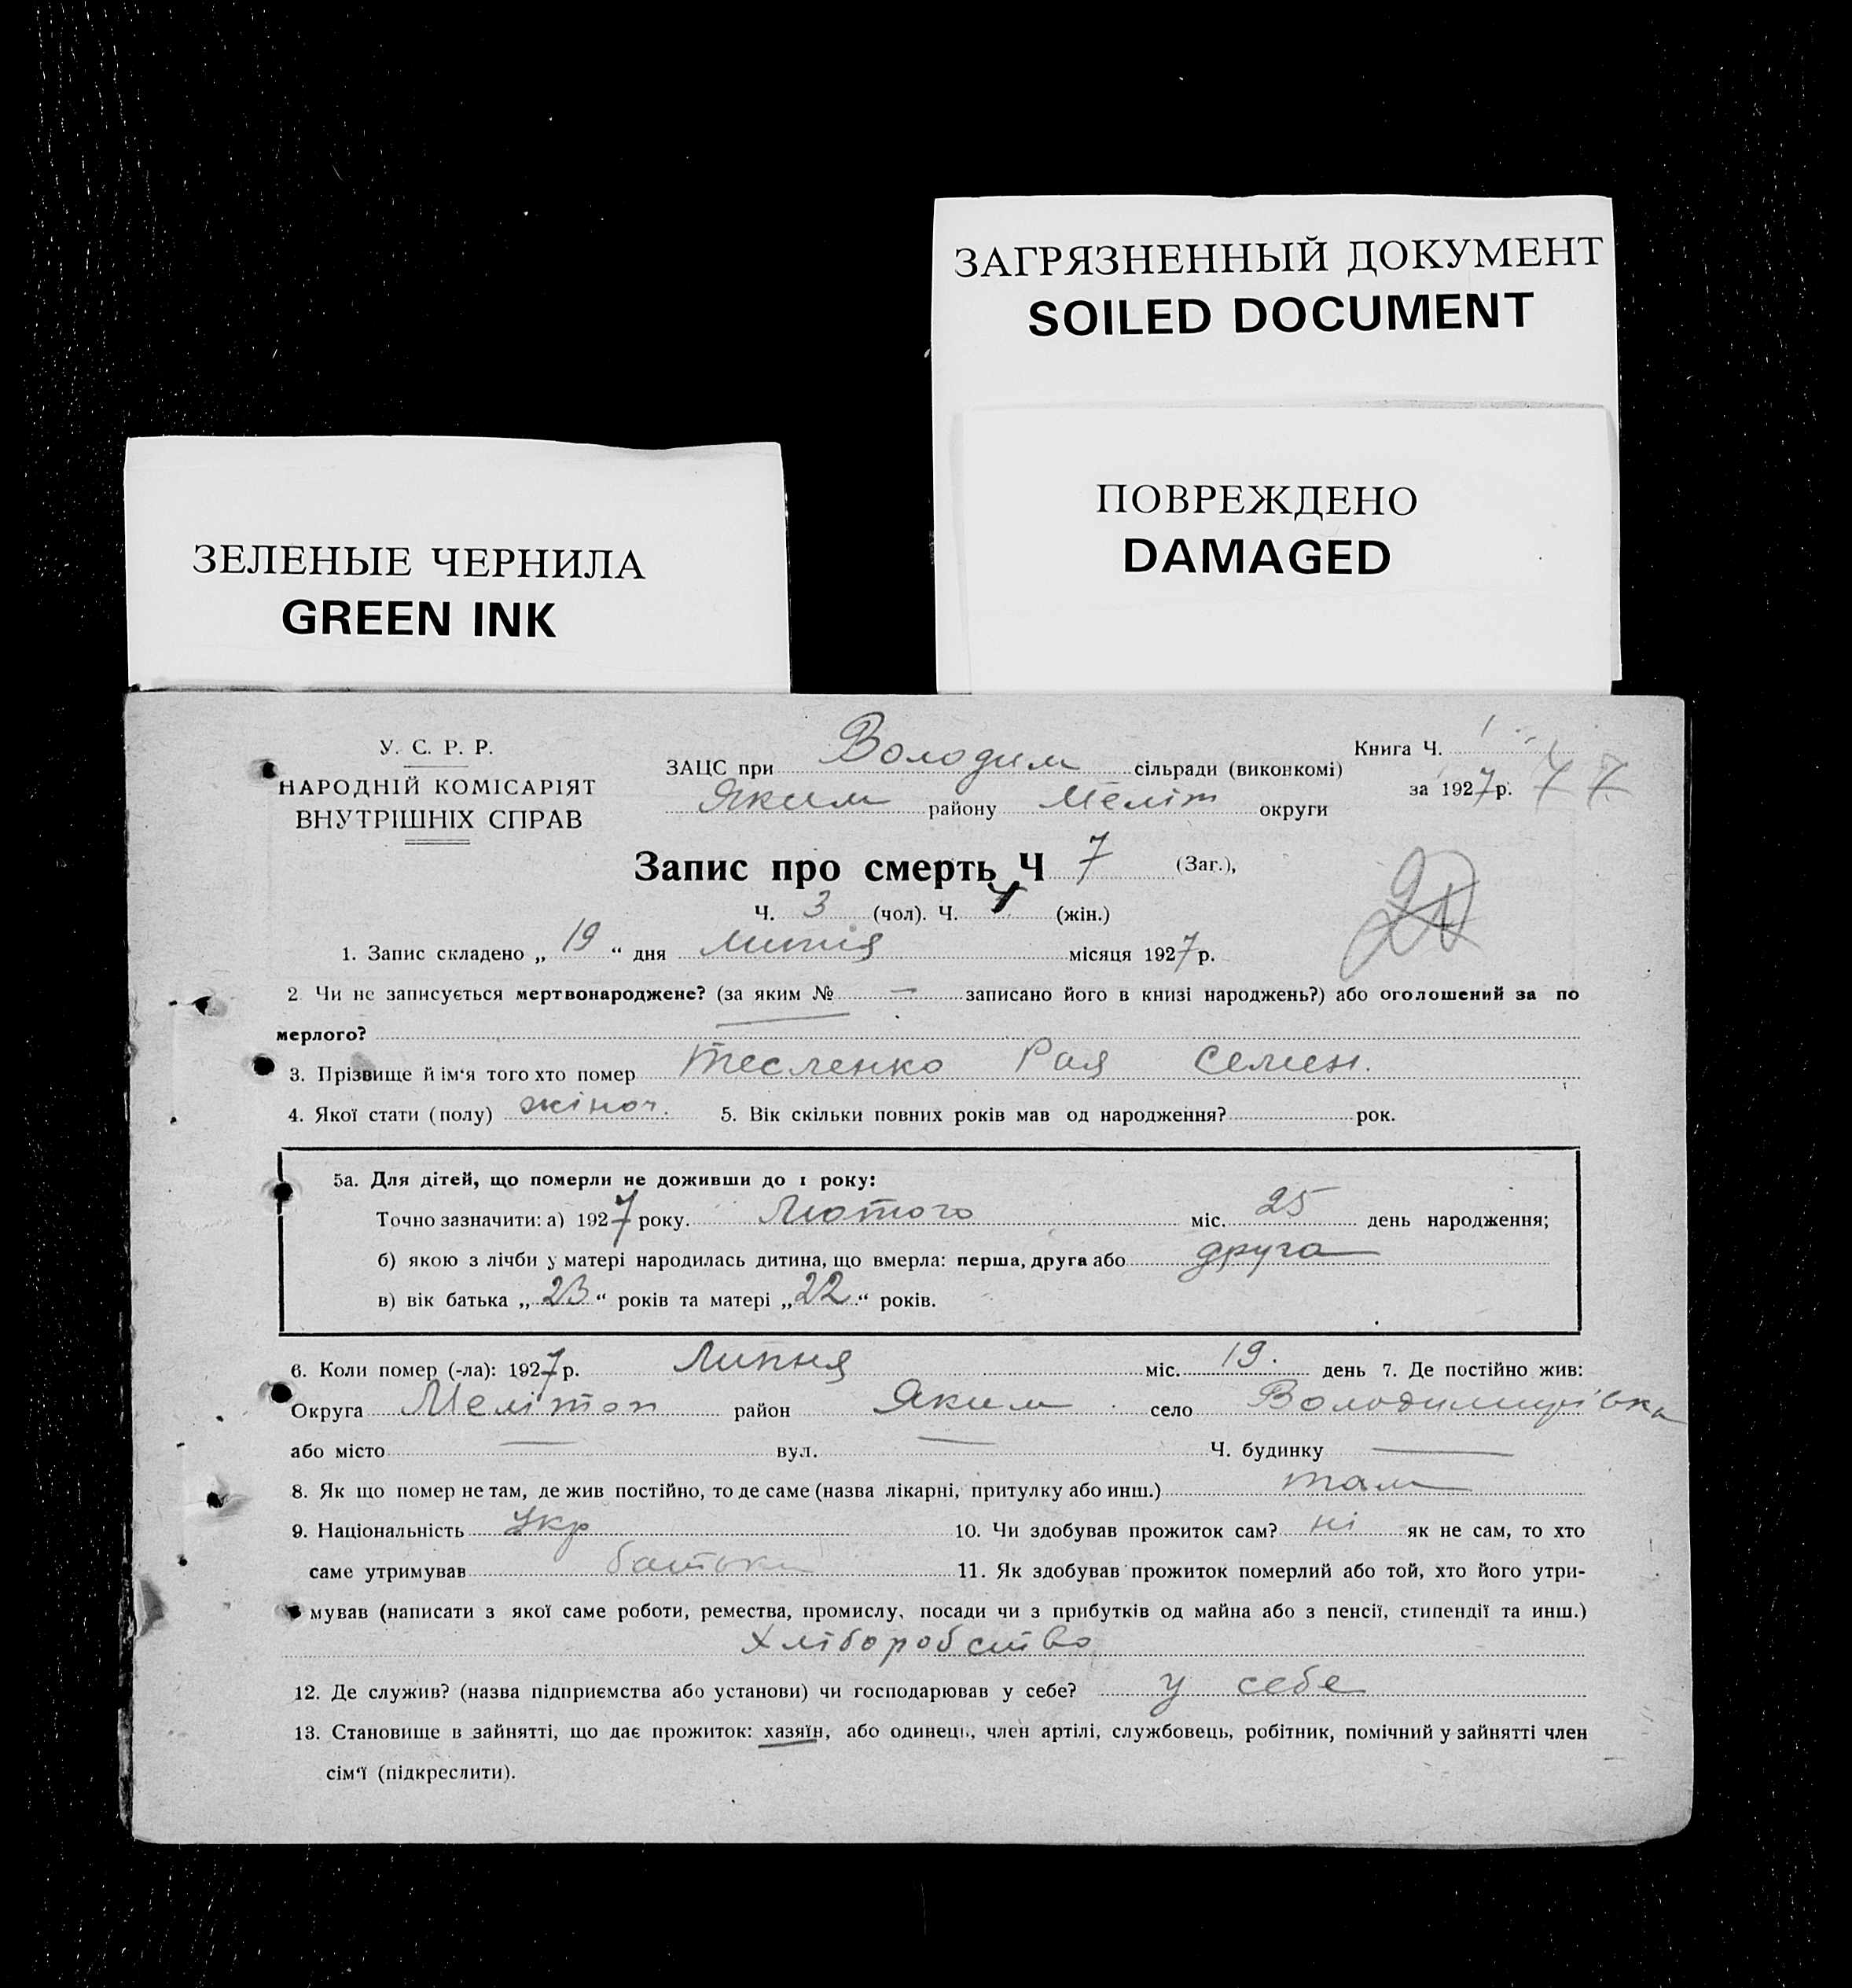 ЗАГРЯЗНЕННЫЙ ДОКУМЕНТ
SOILED DOCUMENT
ПОВРЕЖДЕНО
DAMAGED
ЗЕЛЕНЫЕ ЧЕРНИЛА
GREEN INK
У. С. Р. Р.
НАРОДНІЙ КОМІСАРІЯТ
ВНУТРІШНІХ СПРАВ
ЗАЦС при Володим сільради (виконкомі)
Яким району Меліт округи
Книга Ч. 1
за 1927 р. 77
Запис про смерть Ч 7 (Заг.),
Ч. 3 (чол). Ч. 4 (жін.)
20
1. Запис складено „ 19 “ дня липня місяця 1927 р.
2 Чи не записується мертвонароджене? (за яким № — записано його в книзі народжень?) або оголошений за по
мерлого?
3. Прізвище й ім‘я того хто помер Тесленко Рая Семен.
4. Якої стати (полу) жіноч. 5. Вік скільки повних років мав од народження? рок.
5а. Для дітей, що померли не доживши до 1 року:
Точно зазначити: а) 1927 року. Лютого міс. 25 день народження;
б) якою з лічби у матері народилась дитина, що вмерла: перша, друга або друга
в) вік батька „ 23 “ років та матері „ 22 “ років.
6. Коли помер (-ла): 1927 р. Липня міс. 19. день 7. Де постійно жив:
Округа Мелітоп район Яким село Володимирівка
або місто — вул. — Ч. будинку —
8. Як що помер не там, де жив постійно, то де саме (назва лікарні, притулку або инш.) там
9. Національність Укр 10. Чи здобував прожиток сам? ні як не сам, то хто
саме утримував батьки 11. Як здобував прожиток померлий або той, хто його утри-
мував (написати з якої саме роботи, ремества, промислу, посади чи з прибутків од майна або з пенсії, стипендії та инш.)
Хліборобство
12. Де служив? (назва підприємства або установи) чи господарював у себе? у себе
13. Становище в зайнятті, що дає прожиток: хазяїн, або одинець, член артілі, службовець, робітник, помічний у зайнятті член
сім‘ї (підкреслити).